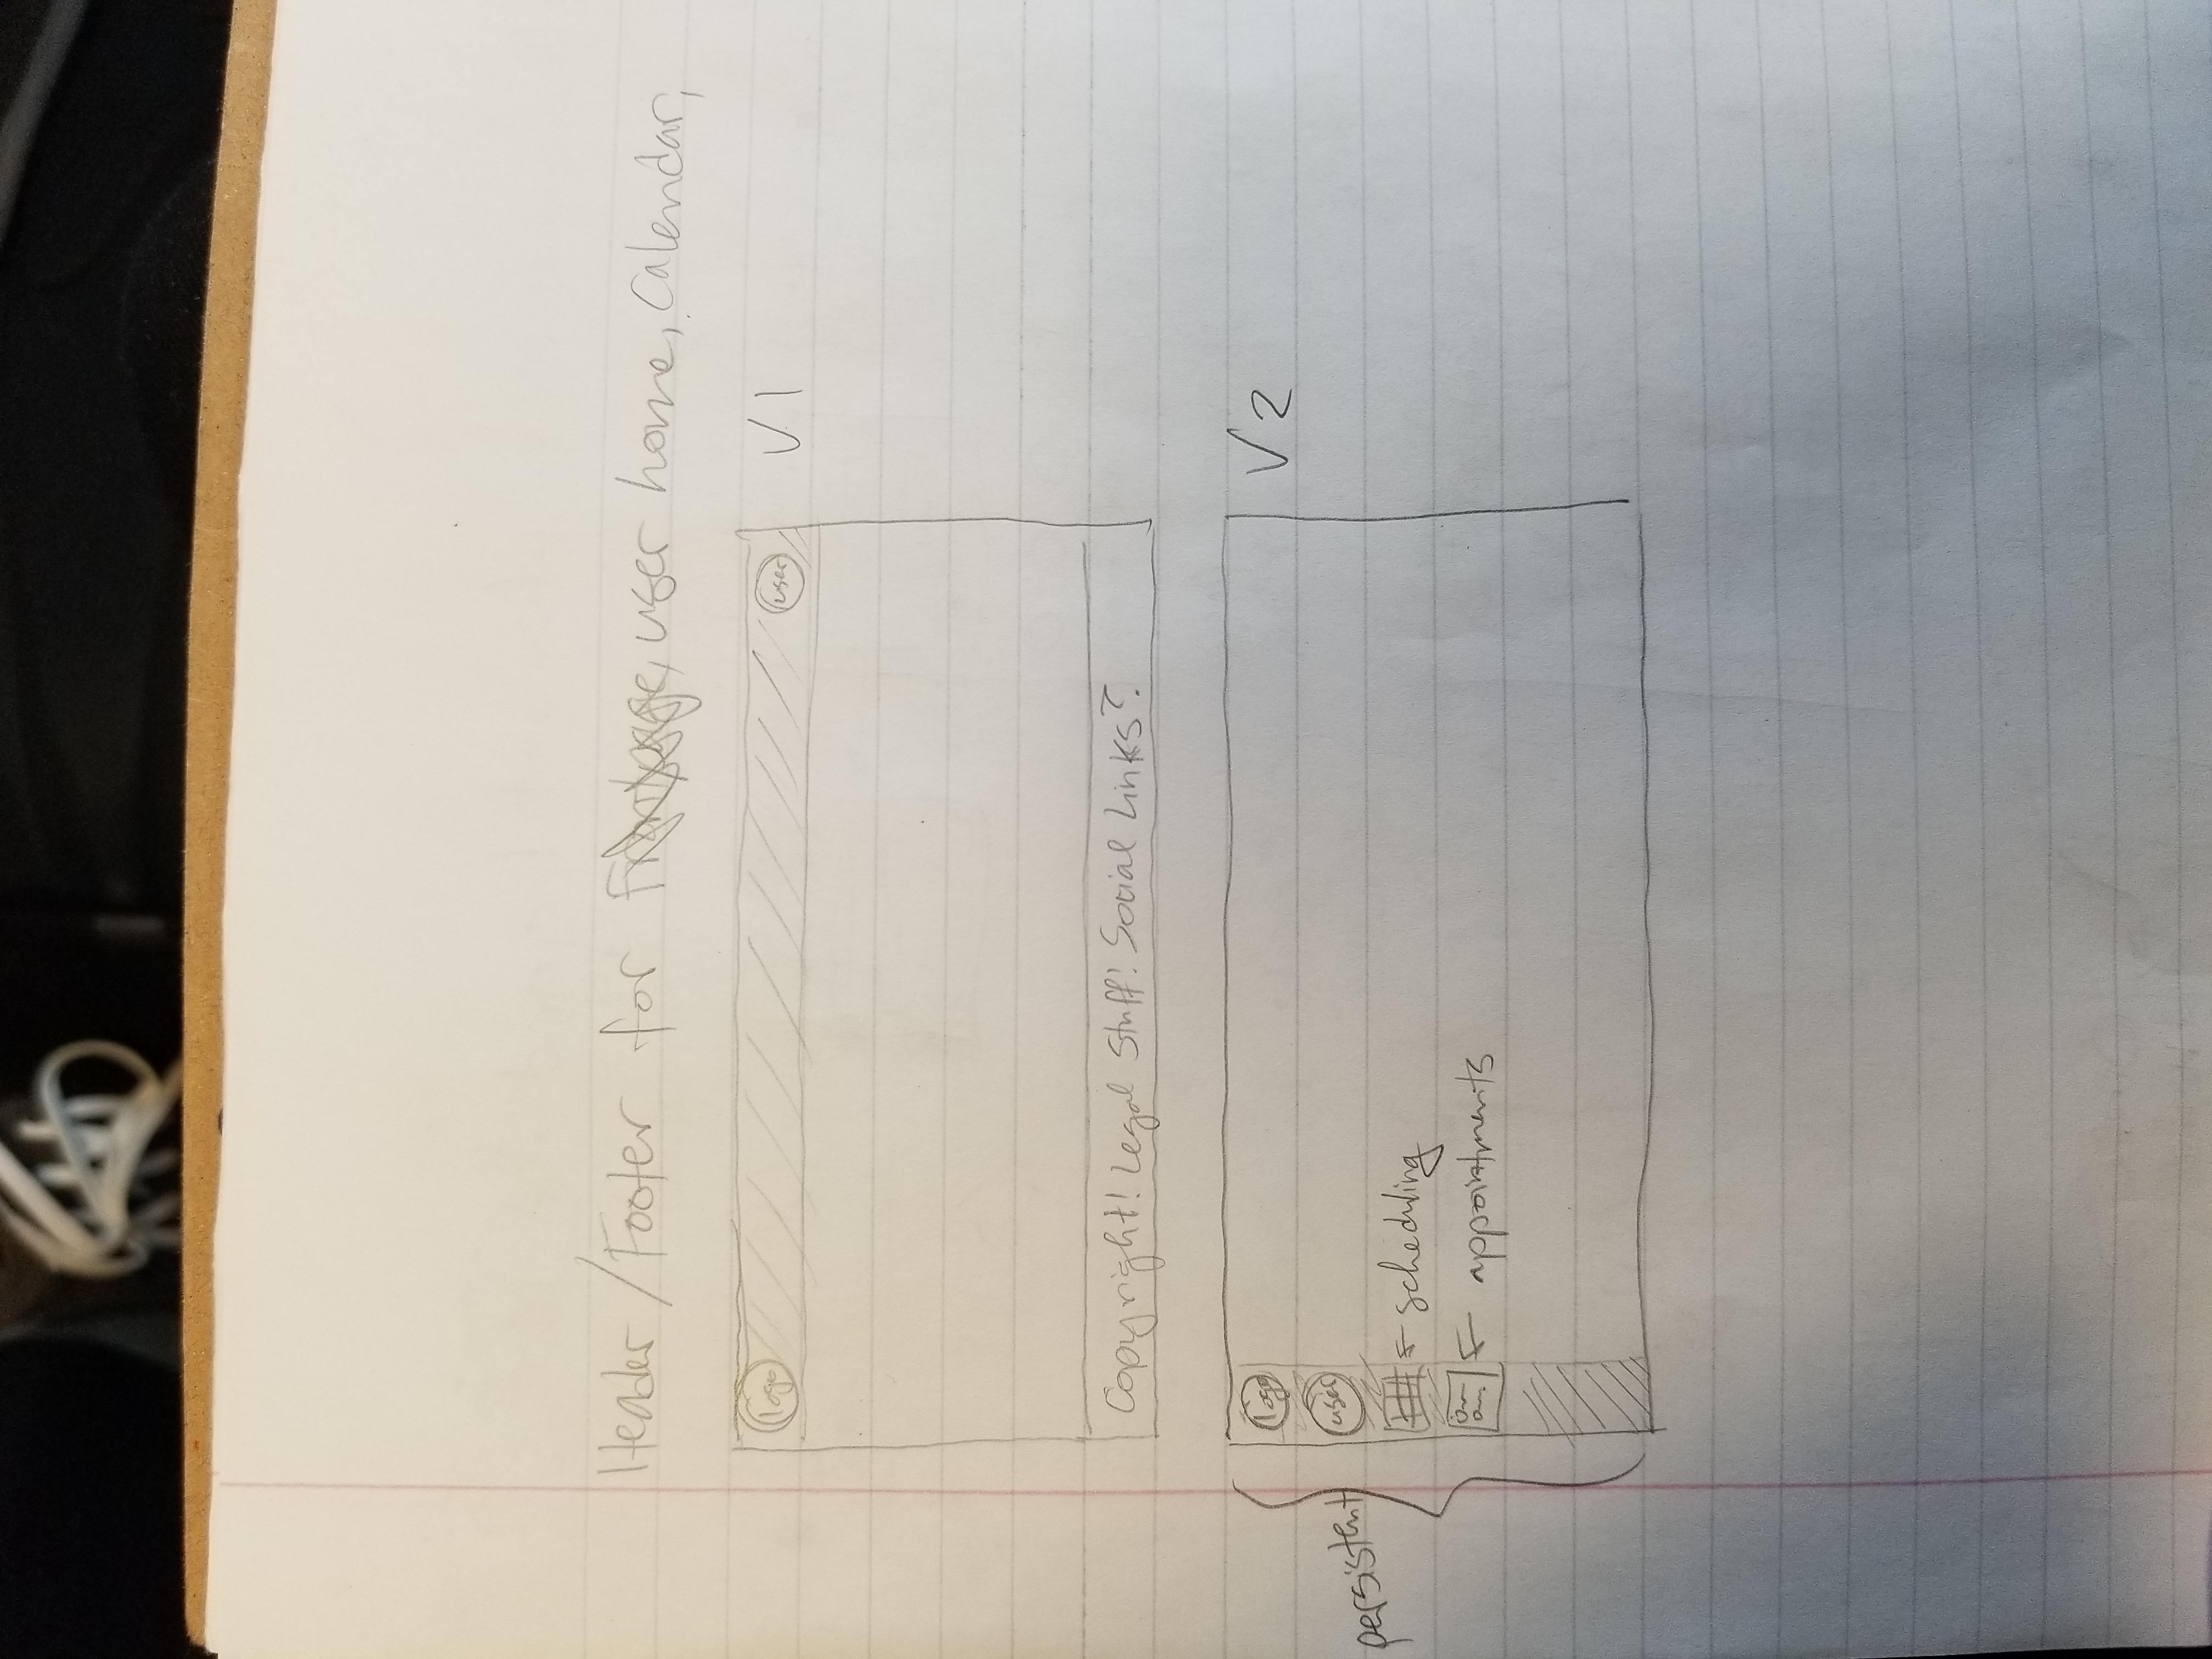 Header/Footer for Frontpage, user home, Calendar,
logo user V1
Copyright! Legal Stuff! Social Links?
logo V2
user
persistent
scheduling
appointments